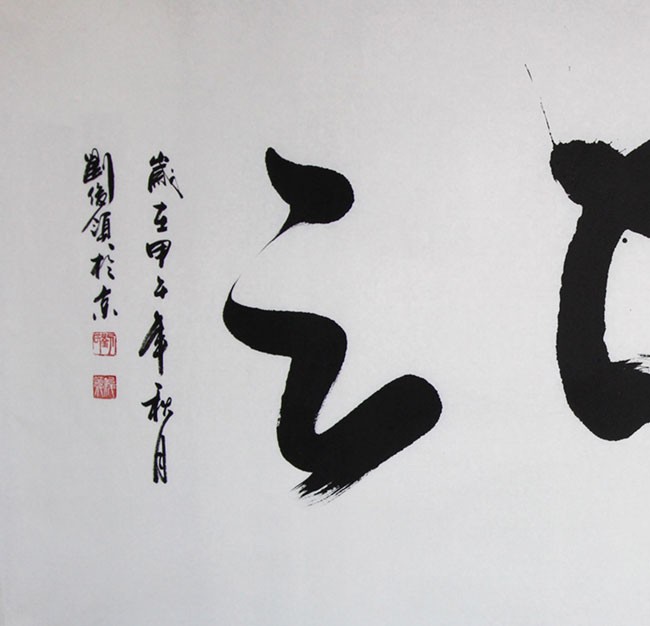 之
歲在甲午年秋月
劉俊領於京